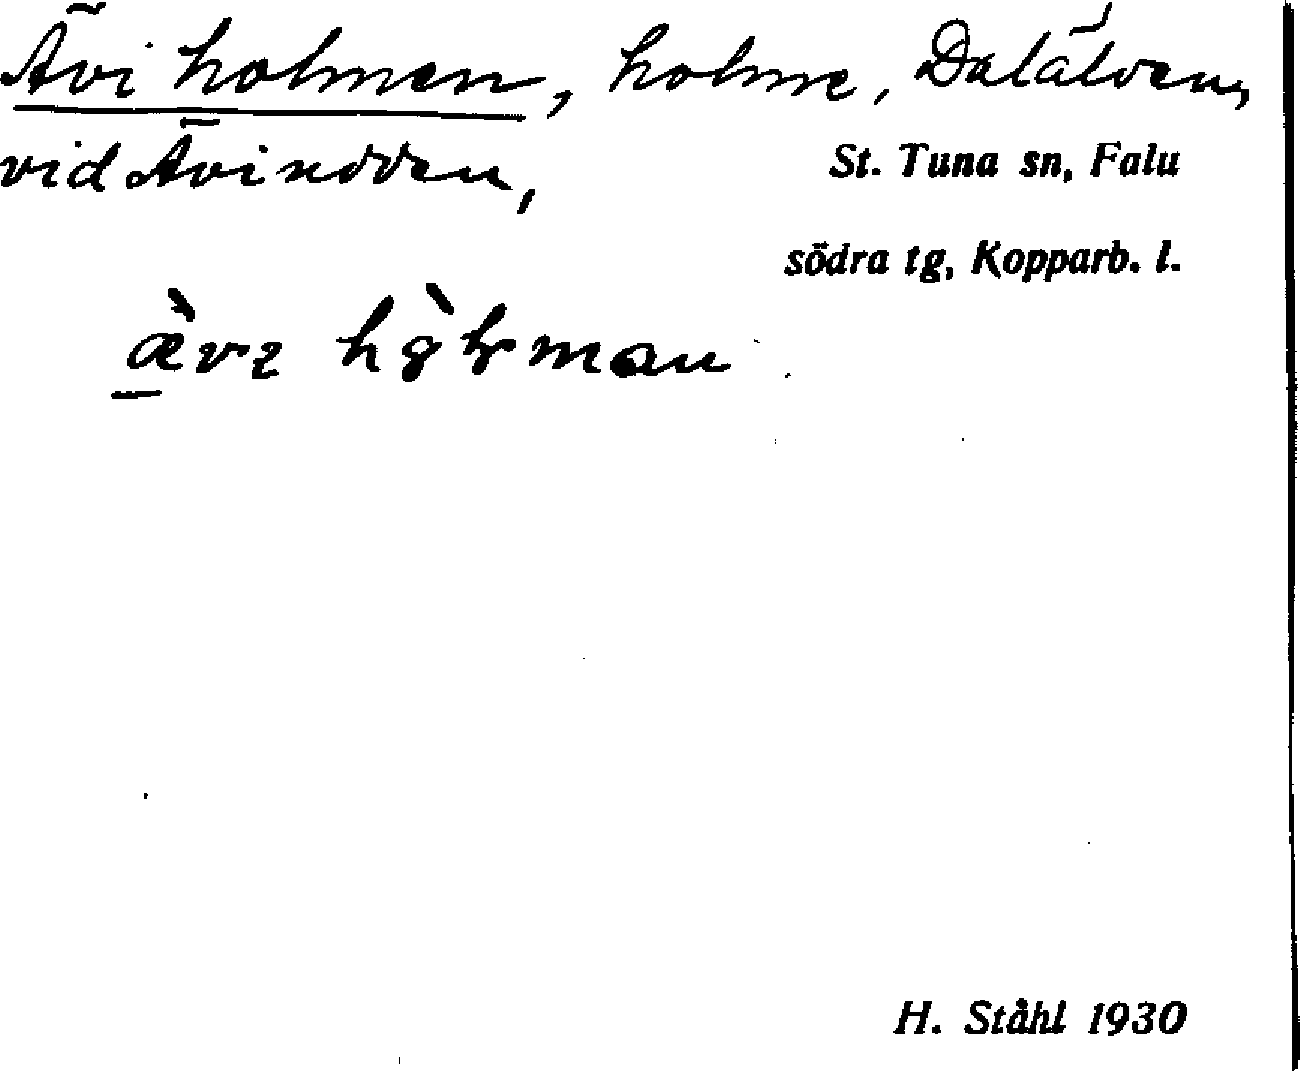 Ävi holmen, holme, Dalälven,
vid Ävixodden, St. Tuna sn, Falu
södra tg, Kopparb. l.
H. Ståhl 1930